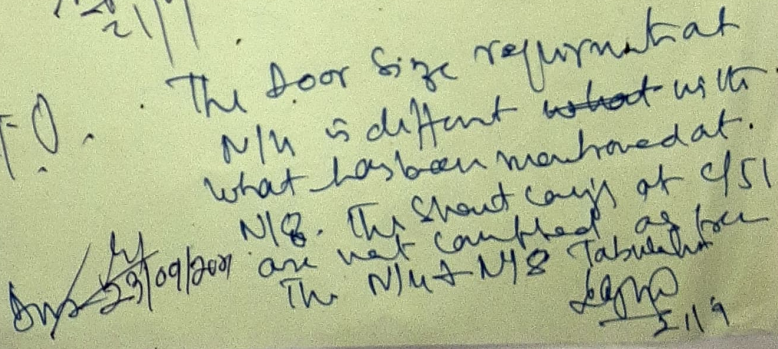 21/9
F.O.
The Door Size requirment at
N/4 is different what with
what has been mentioned at
N/8. The Short comings at C/51
are not complied as per
The N/4 & N/8 Tabulation
23/09/2021
21/9